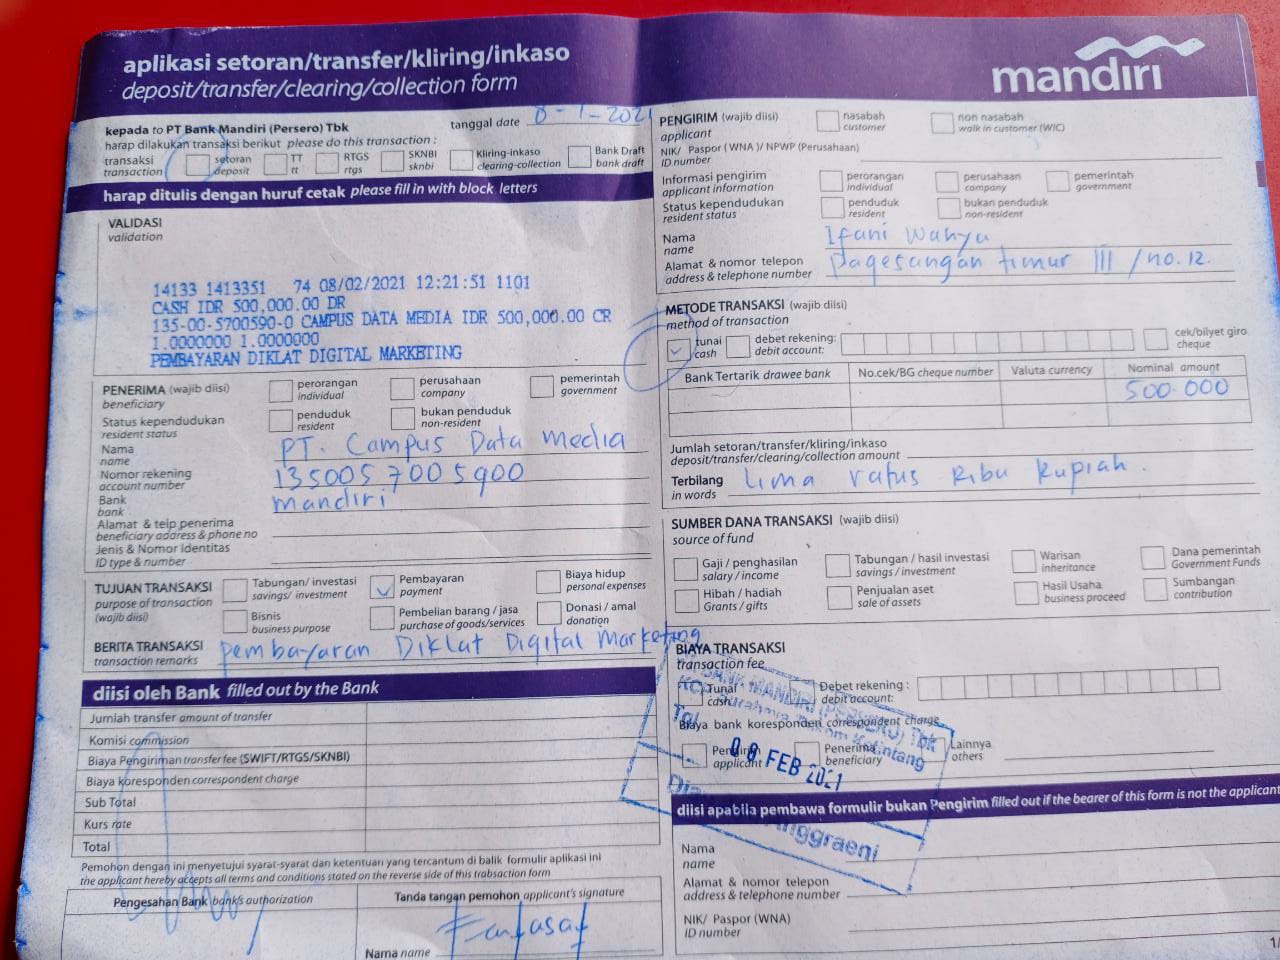 aplikasi setoran/transfer/kliring/inkaso
deposit/transfer/clearing/collection form
mandiri
kepada to PT Bank Mandiri (Persero) Tbk
tanggal date 8-1-2021
harap dilakukan transaksi berikut please do this transaction :
transaksi transaction
setoran deposit
TT tt
RTGS rtgs
SKNBI sknbi
Kliring-inkaso clearing-collection
Bank Draft bank draft
harap ditulis dengan huruf cetak please fill in with block letters
VALIDASI
validation
14133 1413351 74 08/02/2021 12:21:51 1101
CASH IDR 500,000.00 DR
135-00-5700590-0 CAMPUS DATA MEDIA IDR 500,000.00 CR
1.0000000 1.0000000
PEMBAYARAN DIKLAT DIGITAL MARKETING
PENERIMA (wajib diisi)
beneficiary
perorangan individual
perusahaan company
pemerintah government
Status kependudukan
resident status
penduduk resident
bukan penduduk non-resident
Nama name PT. Campus Data Media
Nomor rekening account number 1350057005900
Bank bank mandiri
Alamat & telp penerima
beneficiary address & phone no
Jenis & Nomor Identitas
ID type & number
TUJUAN TRANSAKSI
purpose of transaction
(wajib diisi)
Tabungan/ investasi savings/ investment
Pembayaran payment
Biaya hidup personal expenses
Bisnis business purpose
Pembelian barang / jasa purchase of goods/services
Donasi / amal donation
BERITA TRANSAKSI transaction remarks pembayaran Diklat Digital Marketing
diisi oleh Bank filled out by the Bank
Jumlah transfer amount of transfer
Komisi commission
Biaya Pengiriman transfer fee (SWIFT/RTGS/SKNBI)
Biaya koresponden correspondent charge
Sub Total
Kurs rate
Total
Pemohon dengan ini menyetujui syarat-syarat dan ketentuan yang tercantum di balik formulir aplikasi ini
the applicant hereby accepts all terms and conditions stated on the reverse side of this trabsaction form
Pengesahan Bank bank's authorization
Tanda tangan pemohon applicant's signature
Nama name
PENGIRIM (wajib diisi)
applicant
nasabah customer
non nasabah walk in customer (WIC)
NIK/ Paspor (WNA )/ NPWP (Perusahaan)
ID number
Informasi pengirim
applicant information
perorangan individual
perusahaan company
pemerintah government
Status kependudukan
resident status
penduduk resident
bukan penduduk non-resident
Nama name Ifani Wahyu
Alamat & nomor telepon address & telephone number Pagesangan timur III / no. 12.
METODE TRANSAKSI (wajib diisi)
method of transaction
tunai cash
debet rekening: debit account:
cek/bilyet giro cheque
Bank Tertarik drawee bank
No.cek/BG cheque number
Valuta currency
Nominal amount
500.000
Jumlah setoran/transfer/kliring/inkaso
deposit/transfer/clearing/collection amount
Terbilang in words lima ratus Ribu Rupiah.
SUMBER DANA TRANSAKSI (wajib diisi)
source of fund
Gaji / penghasilan salary / income
Tabungan / hasil investasi savings / investment
Warisan inheritance
Dana pemerintah Government Funds
Hibah / hadiah Grants / gifts
Penjualan aset sale of assets
Hasil Usaha business proceed
Sumbangan contribution
BIAYA TRANSAKSI
transaction fee
Tunai cash
Debet rekening : debit account:
Biaya bank koresponden correspondent charge
Pengirim applicant
Penerima beneficiary
Lainnya others
BANK MANDIRI (PERSERO) Tbk
08 FEB 2021
Anggraeni
diisi apabila pembawa formulir bukan Pengirim filled out if the bearer of this form is not the applicant
Nama
name
Alamat & nomor telepon
address & telephone number
NIK/ Paspor (WNA)
ID number